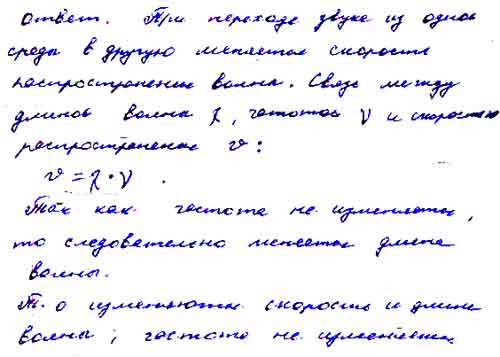 Ответ. При переходе звука из одной
среды в другую меняется скорость
распространения волны. Связь между
длиной волны λ, частотой ν и скоростью
распространения v:
v = λ · ν .
Так как частота не изменяется,
то следовательно меняется длина
волны.
Т. о изменяются скорость и длина
волны, частота не изменяется